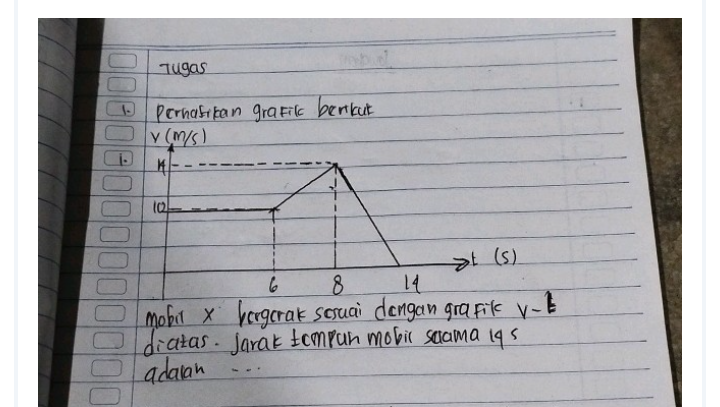 Tugas
1. Perhatikan grafik berikut
v (m/s)
1.
14
10
t (s)
6 8 14
mobil x bergerak sesuai dengan grafik v-t
diatas. Jarak tempuh mobil selama 14 s
adalah ...